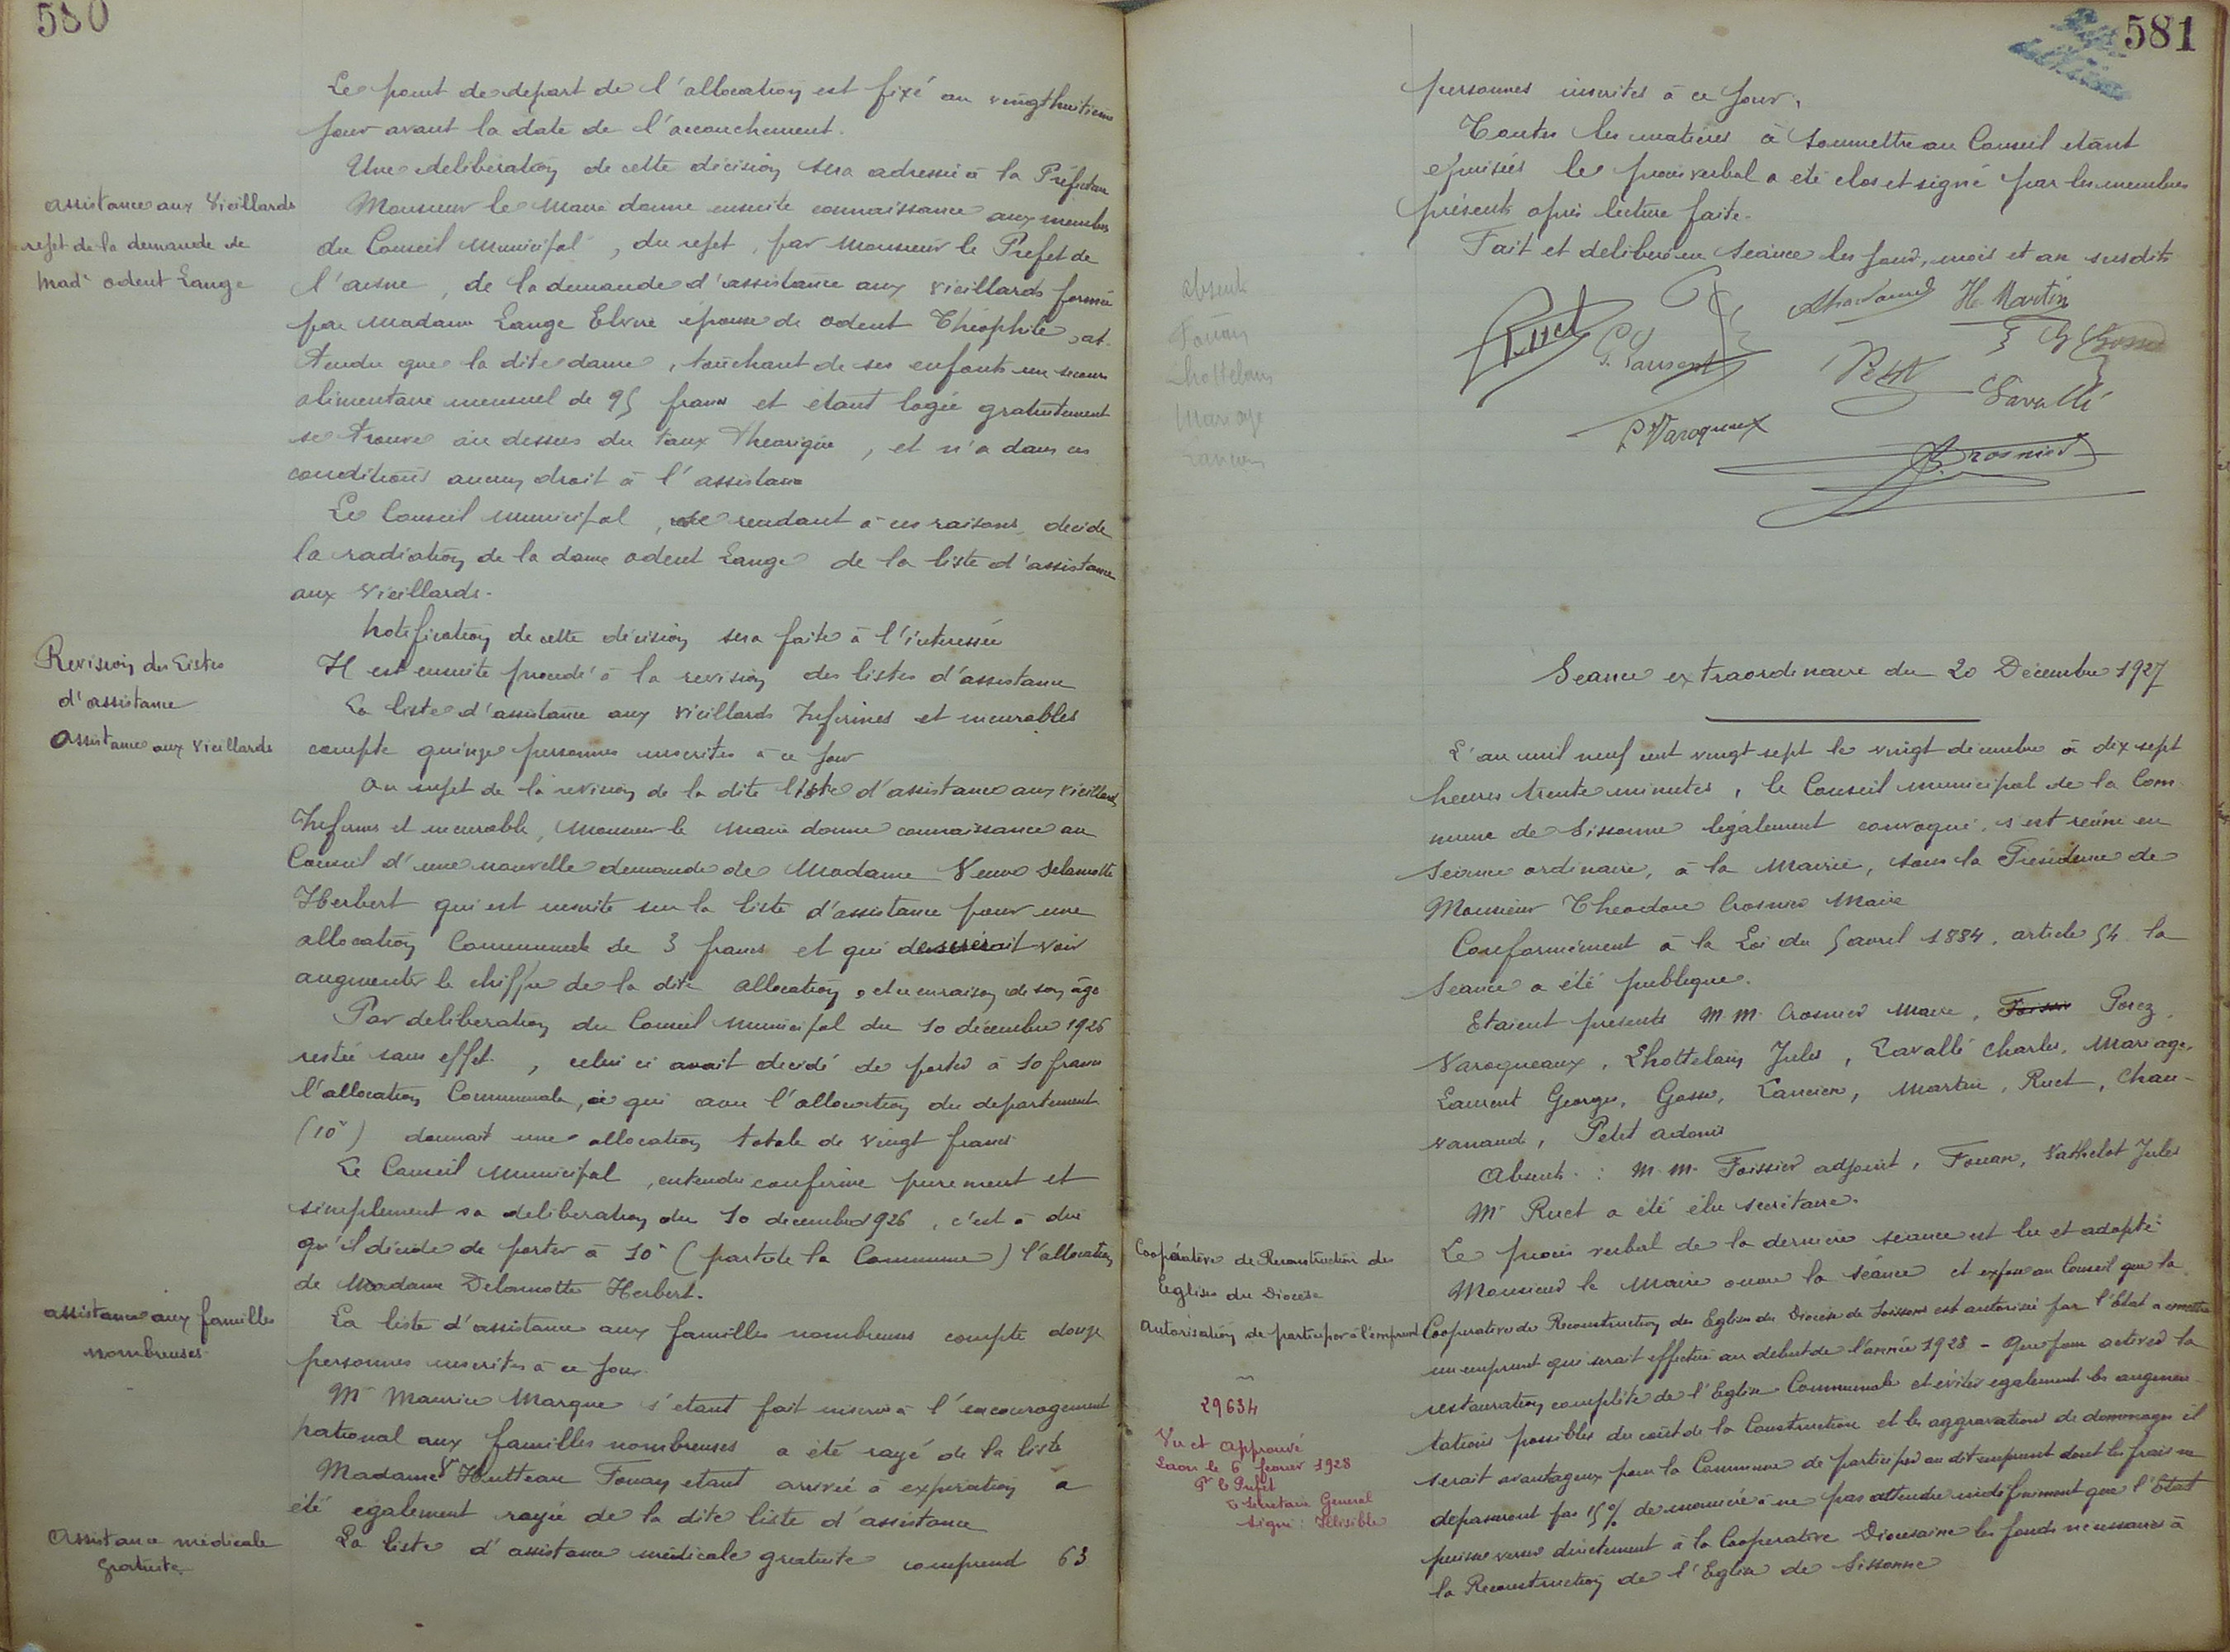 580
Le point de depart de l'allocation est fixé au vingthuitième
jour avant la date de l'accouchement.
Une deliberation de cette décision sera adressée à la Préfecture
assistance aux Vieillards
rejet de la demande de
Mad^e Odent Lange
Monsieur le Maire donne ensuite connaissance aux membres
du Conseil Municipal, du rejet, par Monsieur le Préfet de
l'aisne, de la demande d'assistance aux vieillards formée
par Madame Lange Elvire épouse de Odent Théophile, at-
tendu que la dite dame, touchant de ses enfants un secours
alimentaire mensuel de 95 francs et étant logée gratuitement
se trouve au dessus du taux théorique, et n'a dans ces
conditions aucun droit à l'assistance
Le Conseil Municipal, se rendant à ces raisons, decide
la radiation de la dame Odent Lange de la liste d'assistance
aux Vieillards.
Notification de cette décision sera faite à l'interessée
Revision des Listes
d'assistance
Assistance aux Vieillards
Il est ensuite procédé à la revision des listes d'assistance
La liste d'assistance aux vieillards Infirmes et incurables
compte quinze personnes inscrites à ce jour
Au sujet de la revision de la dite liste d'assistance aux vieillards
Infirmes et incurable, Monsieur le Maire donne connaissance au
Conseil d'une nouvelle demande de Madame Veuve Delamotte
Herbert qui est inscrite sur la liste d'assistance pour une
allocation Communale de 3 francs et qui desirerait voir
augmenter le chiffre de la dite allocation, et ce en raison de son âge
Par deliberation du Conseil Municipal du 10 décembre 1926
restée sans effet, celui ci avait decidé de porter à 10 francs
l'allocation Communale, ce qui avec l'allocation du departement
(10^f) donnait une allocation totale de vingt francs
Le Conseil Municipal, entendu confirme purement et
simplement sa deliberation du 10 decembre 1926, c'est à dire
qu'il décide de porter à 10^f (part de la Commune) l'allocation
de Madame Delamotte Herbert.
assistance aux familles
nombreuses
La liste d'assistance aux familles nombreuses compte douze
personnes inscrites à ce jour.
M^r Maurice Marque s'étant fait inscrire à l'encouragement
national aux familles nombreuses a été rayé de la liste
Madame V^ve Hutteau Fouan etant arrivée à expiration a
été egalement rayée de la dite liste d'assistance
Assistance médicale
gratuite.
La liste d'assistance médicale gratuite comprend 63
581
personnes inscrites à ce jour.
Toutes les matières à soumettre au Conseil etant
epuisées le procès verbal a été clos et signé par les membres
présents après lecture faite.
Fait et deliberé en Seance les jour, mois et an susdits
absents
Fouan
Lhottelain
Mariage
Lancien
Ruet
G. Laurent
H. Martin
G Gosse
Petit
Lavallé
P Varoqueaux
Crosnier
Seance extraordinaire du 20 Décembre 1927
L'an mil neuf cent vingt sept le vingt décembre à dix sept
heures trente minutes, le Conseil municipal de la Com-
mune de Sissonne légalement convoqué, s'est réuni en
Séance ordinaire, à la Mairie, sous la Présidence de
Monsieur Théodore Crosnier Maire
Conformément à la Loi du 5 avril 1884, article 54 la
Séance a été publique.
Etaient présents M.M. Crosnier Maire, Foissier Porez,
Varoqueaux, Lhottelain Jules, Lavallé Charles, Mariage,
Laurent Georges, Gosse, Lancien, Martin, Ruet, Chau-
vanaud, Petit Adonis
Absents : M.M. Foissier adjoint, Fouan, Vathelot Jules
M^r Ruet a été élu secrétaire.
Le procès verbal de la dernière séance est lu et adopté.
Coopérative de Reconstruction des
Eglises du Diocèse
Autorisation de participer à l'emprunt
Monsieur le Maire ouvre la séance et expose au Conseil que la
Coopérative de Reconstruction des Eglises du Diocèse de Soissons est autorisée par l'Etat a emettre
un emprunt qui serait effectué au debut de l'année 1928 - Que pour activer la
restauration complète de l'Eglise Communale et éviter egalement les augmen-
tations possibles du coût de la Construction et les aggravations de dommages il
serait avantageux pour la Commune de participer au dit emprunt dont les frais ne
depasseront pas 15% de manière à ne pas attendre indéfiniment que l'Etat
puisse verser directement à la Coopérative Diocésaine les fonds necessaires à
la Reconstruction de l'Eglise de Sissonne
29634
Vu et approuvé
Laon le 6 fevrier 1928
P^r le Préfet
Le Secrétaire Général
Signé : Illisible